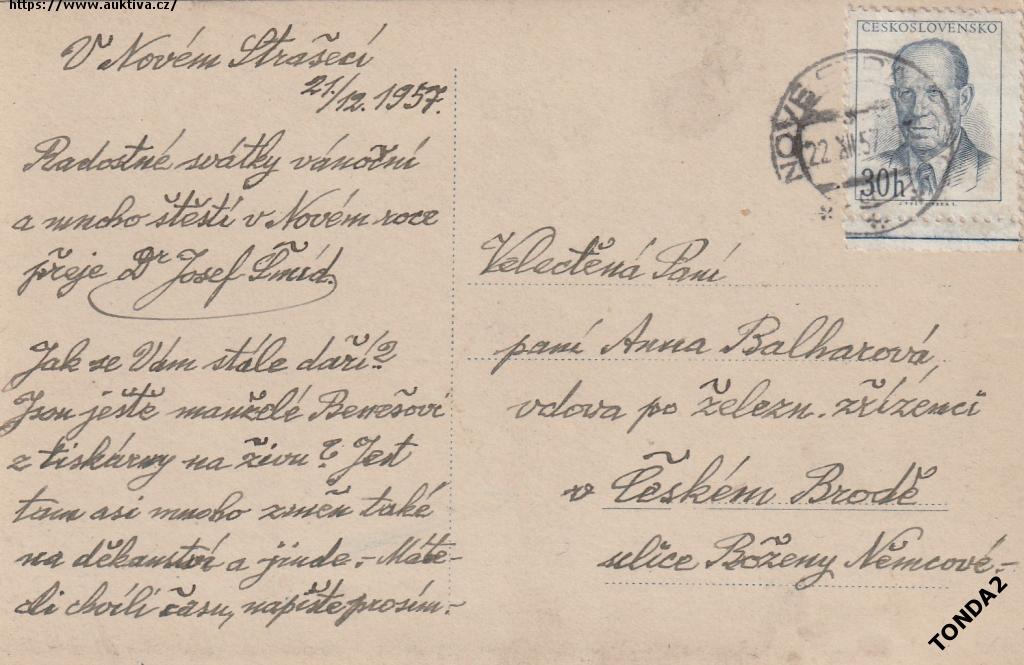 https://www.auktiva.cz/
V Novém Strašecí
21./12. 1957.
Radostné svátky vánoční
a mnoho štěstí v Novém roce
přeje Dr Josef Šmíd.
Jak se Vám stále daří?
Jsou ještě manželé Benešovi
z tiskárny na živu? Jest
tam asi mnoho změn také
na děkanství a jinde.- Máte-
li chvíli času, napište prosím.-
ČESKOSLOVENSKO
30h
NOVÉ
22 XII 57
Velectěná Paní
paní Anna Balharová,
vdova po železn. zřízenci
v Českém Brodě
ulice Boženy Němcové.-
TONDA2